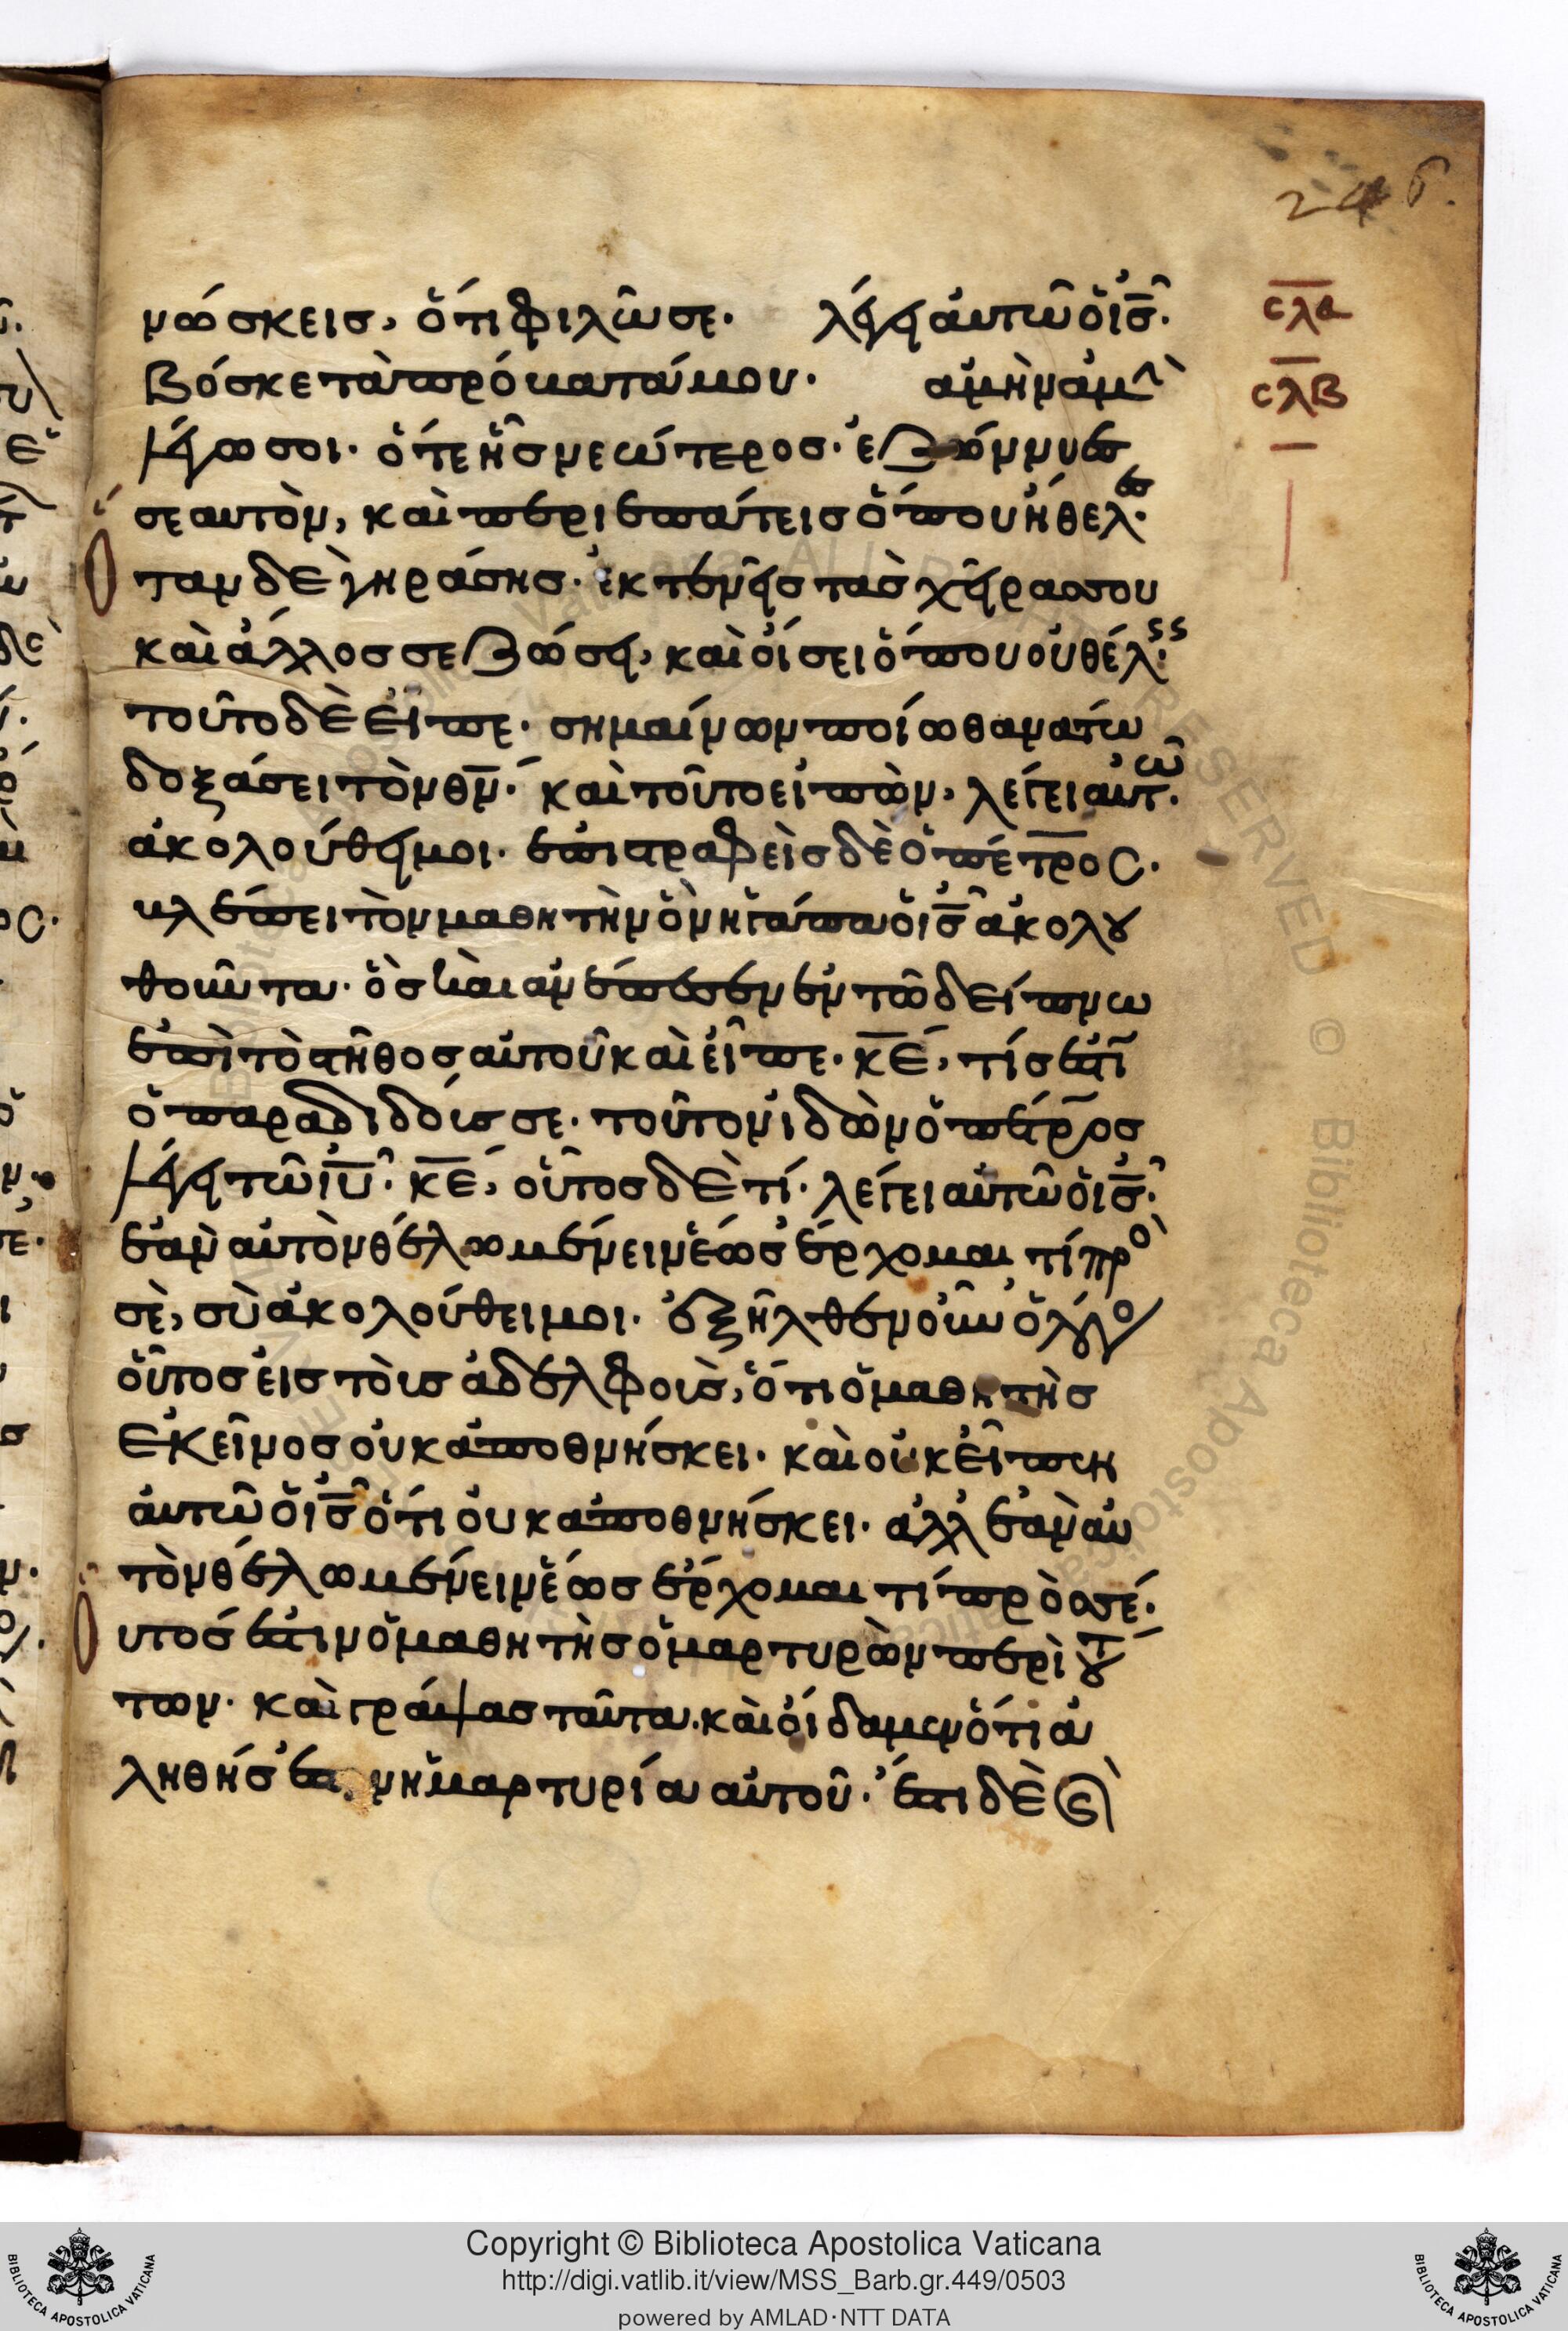 246.
νώσκεις, ὅτι φιλῶ σε. λέγει αὐτῷ ὁ ις̅. σ̅λ̅α̅
Βόσκε τὰ πρόβατά μου. ἀμὴν ἀμὴ σ̅λ̅β̅
λέγω σοι. ὅτε ἦς νεώτερος. ἐζώννυες
σεαυτὸν, καὶ περιεπάτεις ὅπου ἤθελες.
ταν δὲ γηράσης. ἐκτενεῖς τὰς χεῖρας σου
καὶ ἄλλος σε ζώσει, καὶ οἴσει ὅπου οὐ θέλεις.
τοῦτο δὲ εἶπε. σημαίνων ποίω θανάτω
δοξάσει τὸν θν̅. καὶ τοῦτο εἰπὼν, λέγει αὐτῶ.
ἀκολούθει μοι. ἐπιστραφεὶς δὲ ὁ πέτρος.
βλέπει τὸν μαθητὴν ὃν ἠγάπα ὁ ις̅ ἀκολου
θοῦντα. ὃς καὶ ἀνέπεσεν ἐν τῶ δείπνω
ἐπὶ τὸ στῆθος αὐτοῦ καὶ εἶπε. κε̅, τίς ἐστι
ὁ παραδιδούς σε. τοῦτον ἰδὼν ὁ πέτρος
λέγει τῶ ιυ̅. κε̅, οὗτος δὲ τί. λέγει αὐτῶ ὁ ις̅.
ἐὰν αὐτὸν θέλω μένειν ἕως ἔρχομαι τί πρὸ
σὲ, σὺ ἀκολούθει μοι. ἐξῆλθεν οὖν ὁ λόγο
οὗτος εἰς τοὺς ἀδελφοὺς, ὅτι ὁ μαθητὴς
ἐκεῖνος οὐκ ἀποθνήσκει. καὶ οὐκ εἶπεν
αὐτῶ ὁ ις̅ ὅτι οὐκ ἀποθνήσκει. ἀλλ ἐὰν αὐ
τὸν θέλω μένειν ἕως ἔρχομαι τί πρὸς σέ.
υτός ἐστιν ὁ μαθητὴς ὁ μαρτυρὼν περὶ τού
των. καὶ γράψας ταῦτα. καὶ οἴδαμεν ὅτι ἀ
ληθής ἐστιν ἡ μαρτυρία αὐτοῦ. ἔστι δὲ καὶ
Copyright © Biblioteca Apostolica Vaticana
http://digi.vatlib.it/view/MSS_Barb.gr.449/0503
powered by AMLAD·NTT DATA